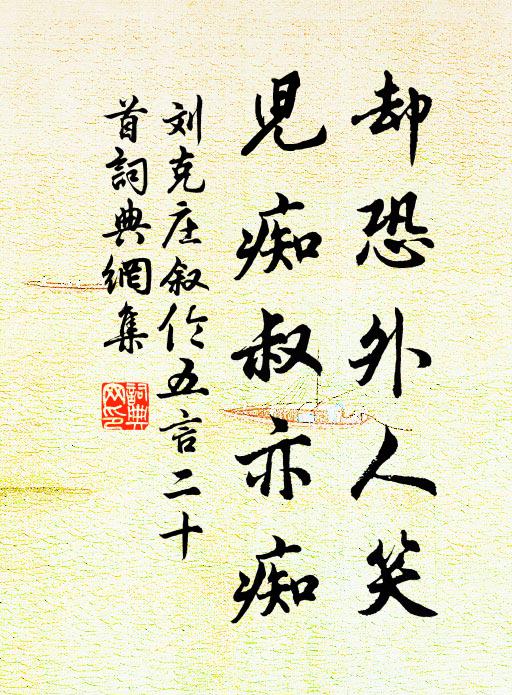 却恐外人笑
児痴叔亦痴
刘克庄叙伦五言二十
首詞典網集
詞典網印